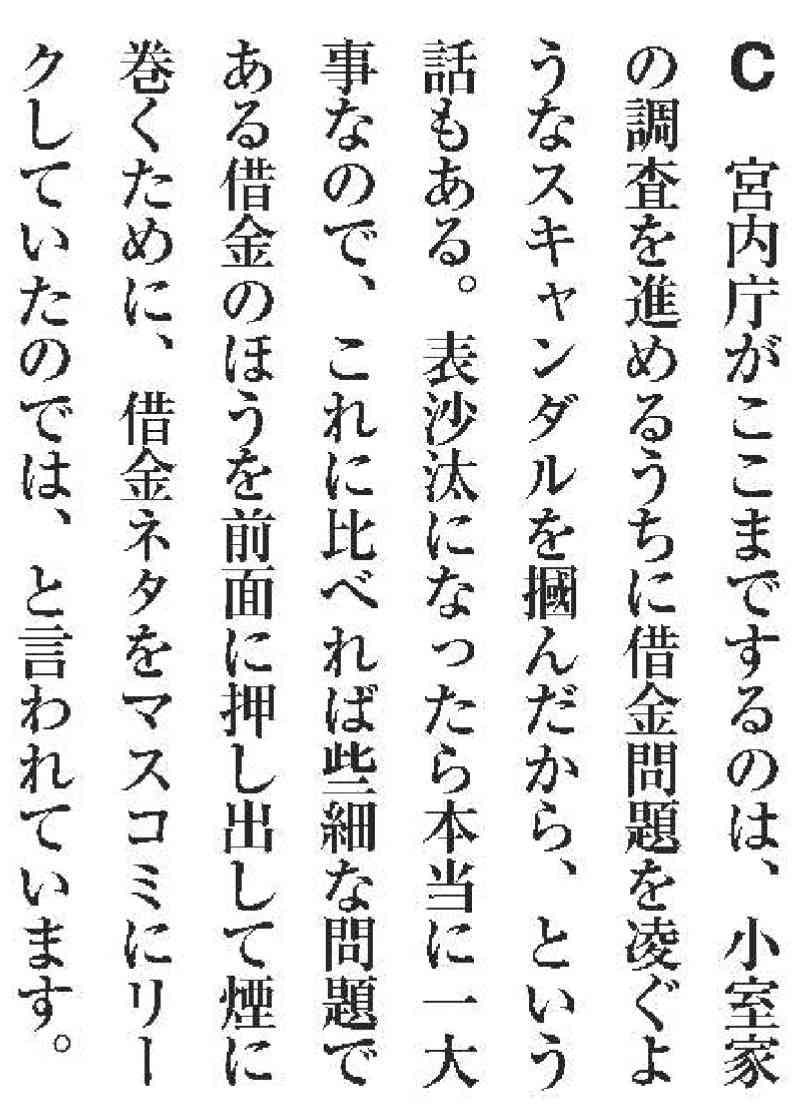 C　宮内庁がここまでするのは、小室家
の調査を進めるうちに借金問題を凌ぐよ
うなスキャンダルを摑んだから、という
話もある。表沙汰になったら本当に一大
事なので、これに比べれば些細な問題で
ある借金のほうを前面に押し出して煙に
巻くために、借金ネタをマスコミにリー
クしていたのでは、と言われています。